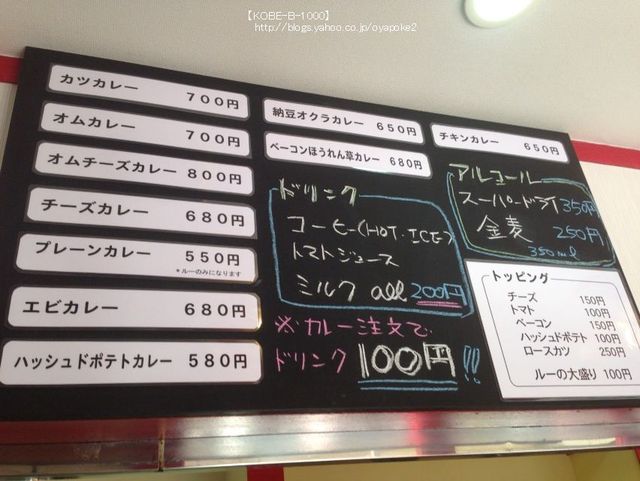 【KOBE-B-1000】
http://blogs.yahoo.co.jp/oyapoke2
カツカレー 700円
オムカレー 700円
オムチーズカレー 800円
チーズカレー 680円
プレーンカレー 550円
*ルーのみになります
エビカレー 680円
ハッシュドポテトカレー 580円
納豆オクラカレー 650円
ベーコンほうれん草カレー 680円
チキンカレー 650円
ドリンク
コーヒー(HOT・ICE)
トマトジュース
ミルク all 200円
※カレー注文で
ドリンク 100円!!
アルコール
スーパードライ 350円
金麦 250円
350ml
トッピング
チーズ 150円
トマト 100円
ベーコン 150円
ハッシュドポテト 100円
ロースカツ 250円
ルーの大盛り 100円